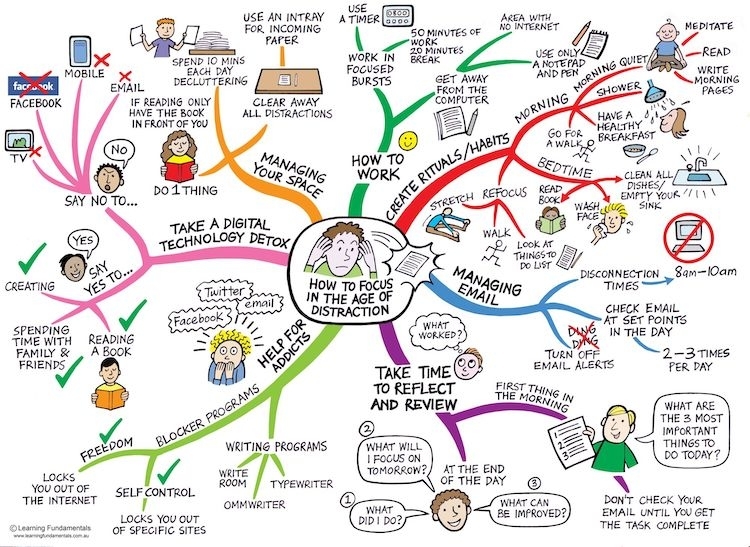 HOW TO FOCUS
IN THE AGE OF
DISTRACTION
HOW TO
WORK
WORK IN
FOCUSED
BURSTS
USE
A TIMER
50 MINUTES OF
WORK
20 MINUTES
BREAK
GET AWAY
FROM THE
COMPUTER
AREA WITH
NO INTERNET
USE ONLY
A NOTEPAD
AND PEN
CREATE RITUALS/HABITS
MORNING
MORNING QUIET
MEDITATE
READ
WRITE
MORNING
PAGES
SHOWER
HAVE A
HEALTHY
BREAKFAST
GO FOR
A WALK
BEDTIME
CLEAN ALL
DISHES/
EMPTY YOUR
SINK
WASH
FACE
READ
BOOK
REFOCUS
STRETCH
WALK
LOOK AT
THINGS TO
DO LIST
MANAGING
EMAIL
DISCONNECTION
TIMES
8am-10am
CHECK EMAIL
AT SET POINTS
IN THE DAY
2-3 TIMES
PER DAY
DING
DING
TURN OFF
EMAIL ALERTS
TAKE TIME
TO REFLECT
AND REVIEW
WHAT
WORKED?
FIRST THING IN
THE MORNING
1
2
3
WHAT ARE
THE 3 MOST
IMPORTANT
THINGS TO
DO TODAY?
DON'T CHECK YOUR
EMAIL UNTIL YOU GET
THE TASK COMPLETE
AT THE END
OF THE DAY
1
WHAT
DID I DO?
2
WHAT WILL
I FOCUS ON
TOMORROW?
3
WHAT CAN
BE IMPROVED?
HELP FOR
ADDICTS
Twitter
email
Facebook
WRITING PROGRAMS
WRITE
ROOM
OMMWRITER
TYPEWRITER
BLOCKER PROGRAMS
FREEDOM
LOCKS
YOU OUT OF
THE INTERNET
SELF CONTROL
LOCKS YOU OUT
OF SPECIFIC SITES
TAKE A DIGITAL
TECHNOLOGY DETOX
SAY
YES TO...
YES
CREATING
SPENDING
TIME WITH
FAMILY &
FRIENDS
READING
A BOOK
SAY NO TO...
NO
TV
facebook
FACEBOOK
MOBILE
EMAIL
MANAGING
YOUR SPACE
DO 1 THING
IF READING ONLY
HAVE THE BOOK
IN FRONT OF YOU
SPEND 10 MINS
EACH DAY
DECLUTTERING
CLEAR AWAY
ALL DISTRACTIONS
USE AN INTRAY
FOR INCOMING
PAPER
© Learning Fundamentals
www.learningfundamentals.com.au